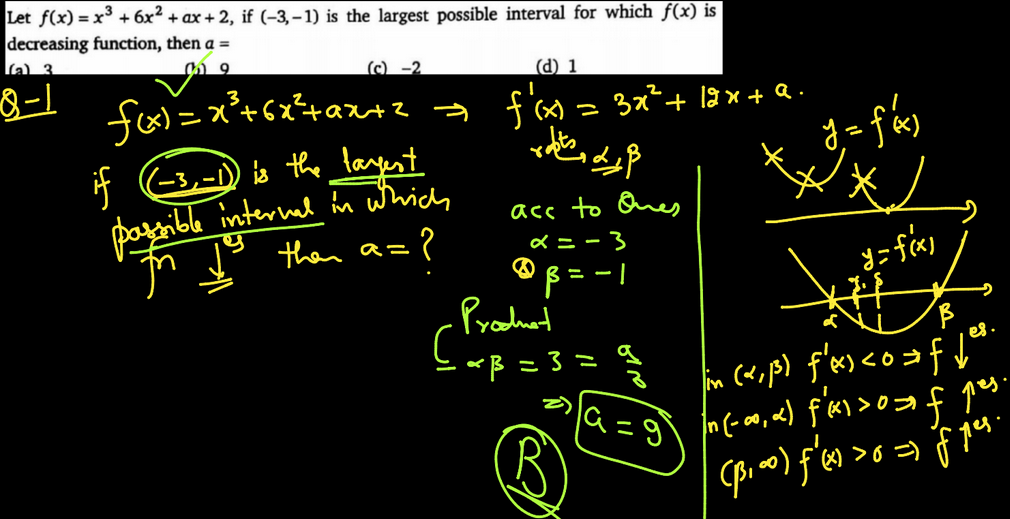 Let f(x) = x³ + 6x² + ax + 2, if (−3, −1) is the largest possible interval for which f(x) is
decreasing function, then a =
(a) 3 (b) 9 (c) −2 (d) 1
Q-1
f(x) = x³+6x²+ax+2 ⇒ f'(x) = 3x² + 12x + a.
roots → α, β
if (-3,-1) is the largest
possible interval in which
fn ↓es then a = ?
acc to Ques
α = -3
& β = -1
Product
αβ = 3 = a/3
⇒ a = 9
B
y = f'(x)
y = f'(x)
α
β
in (α,β) f'(x) < 0 ⇒ f ↓es.
in (-∞,α) f'(x) > 0 ⇒ f ↑es.
(β,∞) f'(x) > 0 ⇒ f ↑es.